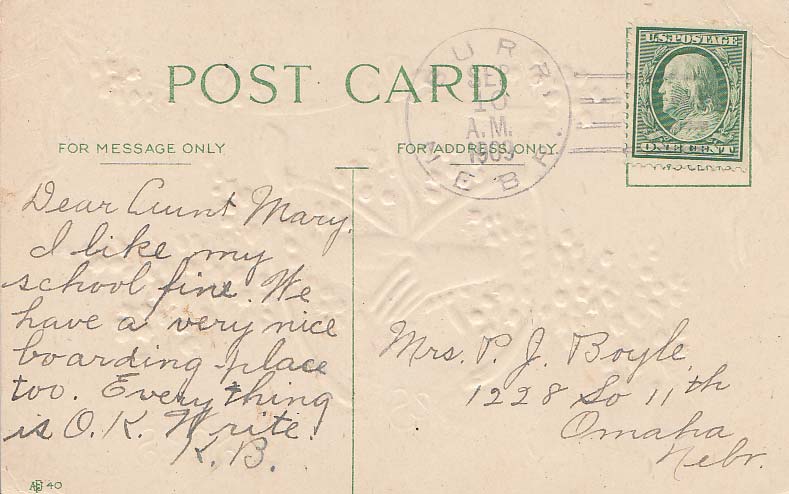 POST CARD
FOR MESSAGE ONLY
FOR ADDRESS ONLY.
BURR,
SEP
10
A.M.
1909
NEBR.
U.S. POSTAGE
ONE CENT
Dear Aunt Mary,
I like my
school fine. We
have a very nice
boarding place
too. Everything
is O.K. Write!
K.B.
Mrs. P. J. Boyle
1228 So 11th
Omaha
Nebr.
40